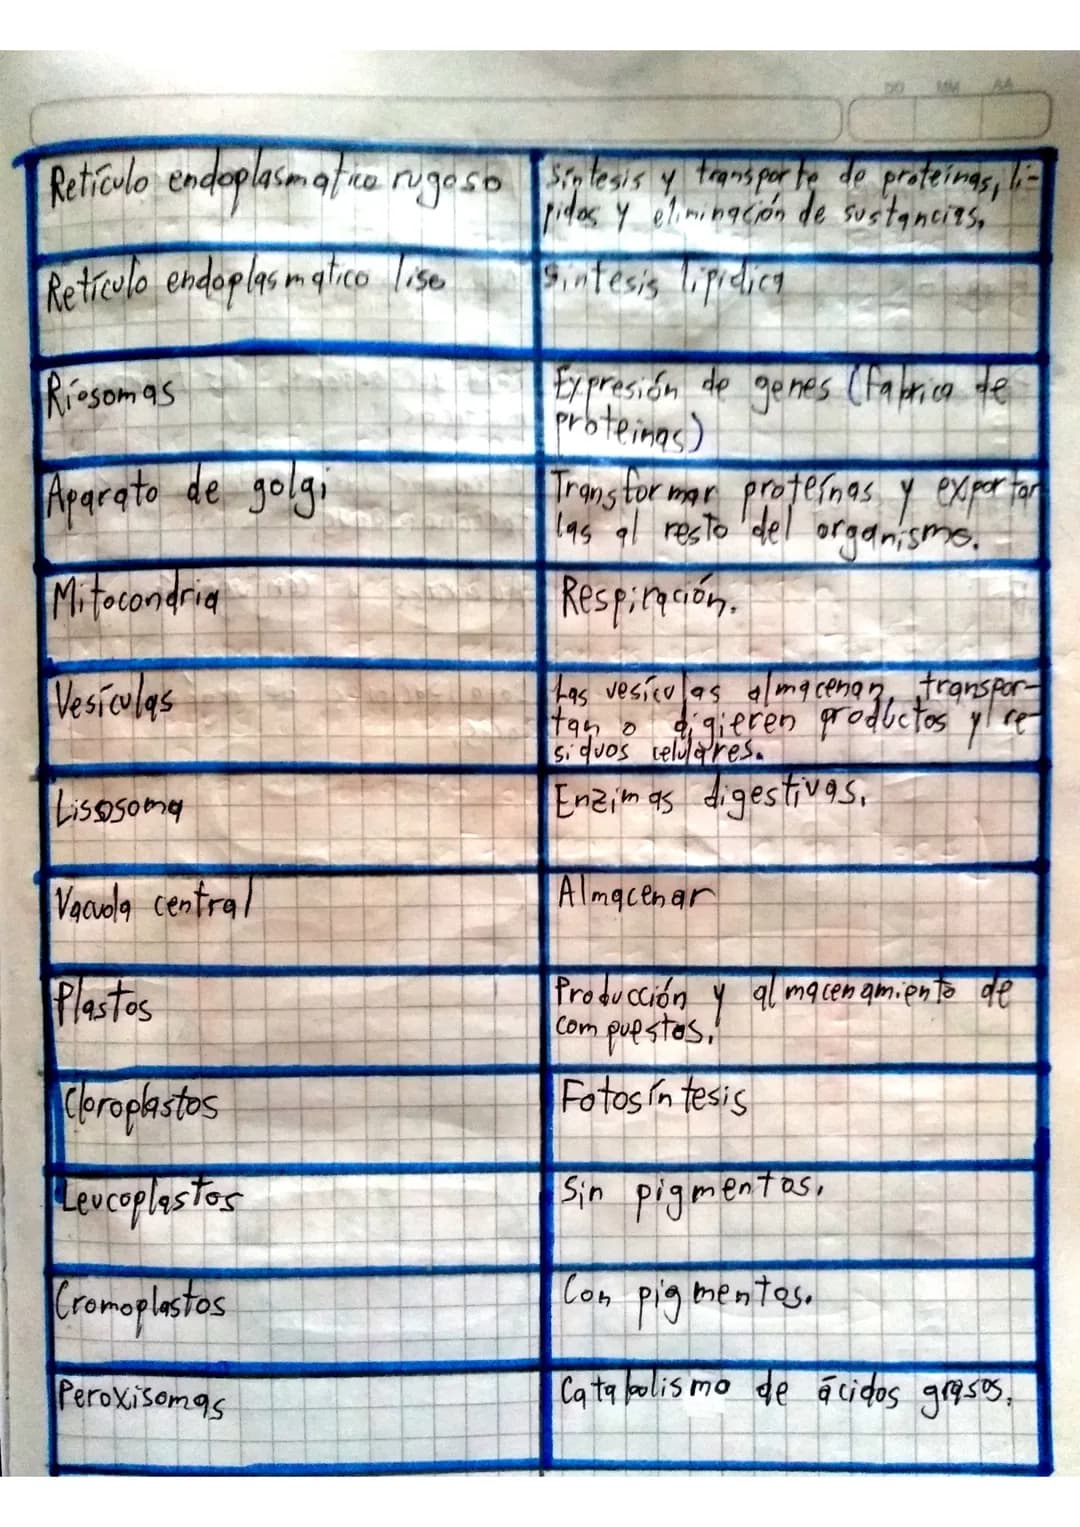 DD MM AA
Retículo endoplasmatico rugoso
Síntesis y transporte de proteínas, lí-
pidos y eliminación de sustancias.
Retículo endoplasmatico liso
Síntesis lipidica
Ríosomas
Expresión de genes (fabrica de
proteinas)
Aparato de golgi
Transformar proteínas y exportar
las al resto del organismo.
Mitocondria
Respiración.
Vesículas
Las vesículas almacenan, transpor-
tan o digieren productos y re-
siduos celulares.
Lisosoma
Enzimas digestivas.
Vacuola central
Almacenar
Plastos
Producción y almacenamiento de
compuestos.
Cloroplastos
Fotosíntesis
Leucoplastos
Sin pigmentos.
Cromoplastos
Con pigmentos.
Peroxisomas
Catabolismo de ácidos grasos.